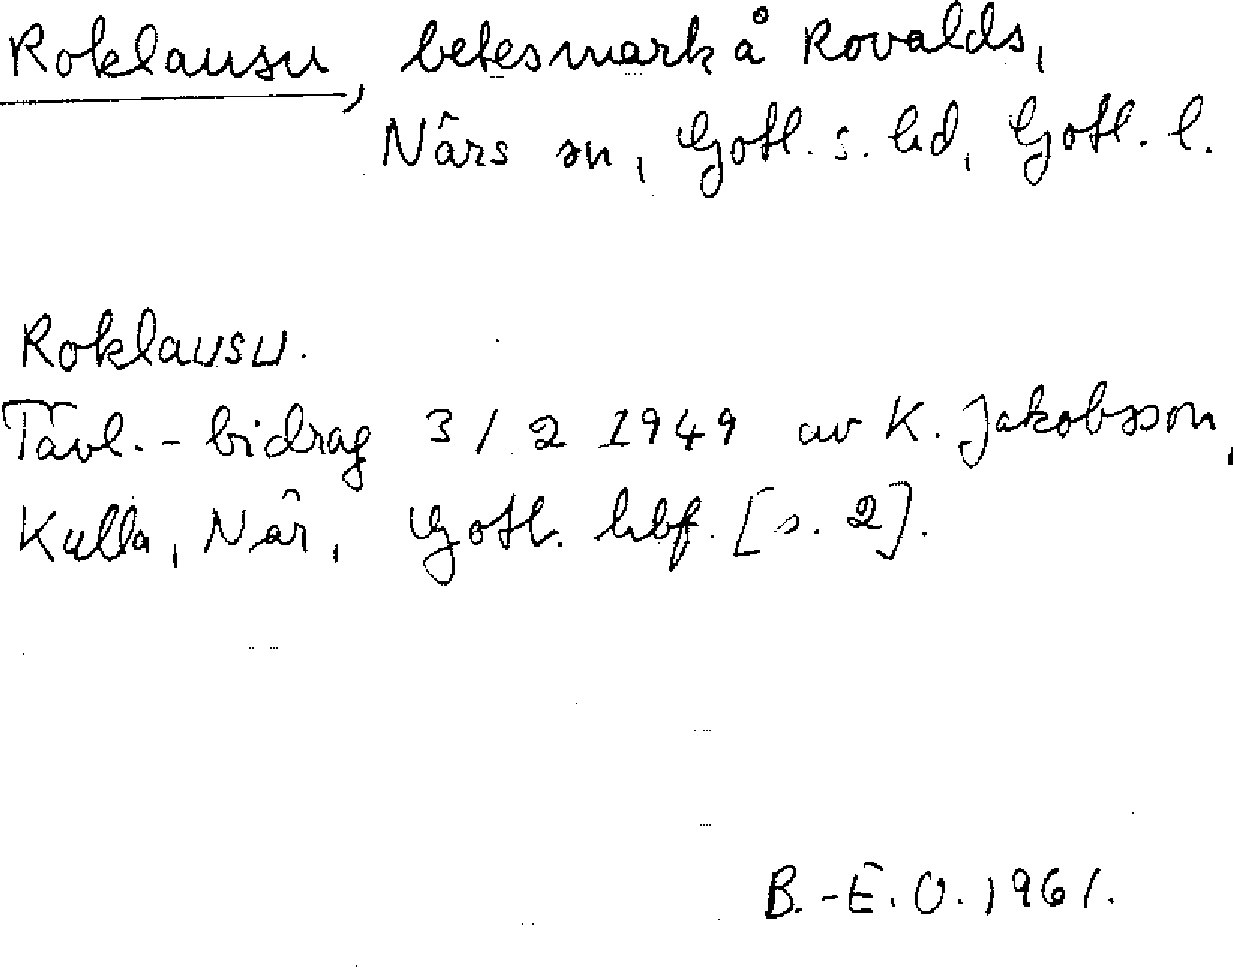 Roklausu, betesmark å Rovalds,
Närs sn, Gotl. s. hd, Gotl. l.
Roklausu.
Tävl.-bidrag 3/2 1949 av K. Jakobsson,
Kulla, När, Gotl. hbf. [s. 2].
B.-E. O. 1961.